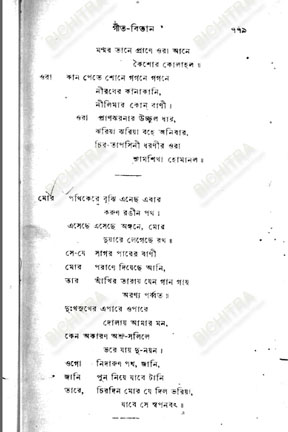 গীত-বিতান ৭৭৯
মন্মর তানে প্রাণে ওরা আনে
কৈশোর কোলাহল॥
ওরা কান পেতে শোনে গগনে গগনে
নীরবের কানাকানি,
নীলিমার কোন্ বাণী।
ওরা প্রাণঝরনার উচ্ছল ধার,
ঝরিয়া ঝরিয়া বহে অনিবার,
চির-তাপসিনী ধরণীর ওরা
শ্যামশিখা হোমানল॥
মোর পথিকেরে বুঝি এনেছ এবার
করুণ রঙীন পথ।
এসেছে এসেছে অঙ্গনে, মোর
দুয়ারে লেগেছে রথ॥
সে-যে সাগর পারের বাণী
মোর পরাণে দিয়েছে আনি,
তার আঁখির তারায় যেন গান গায়
অরণ্য পর্ব্বত॥
দুঃখসুখের এপারে ওপারে
দোলায় আমার মন,
কেন অকারণ অশ্রু-সলিলে
ভরে যায় দু-নয়ন।
ওগো নিদারুণ পথ, জানি,
জানি পুন নিয়ে যাবে টানি
তারে, চিরদিন মোর যে দিল ভরিয়া,
যাবে সে স্বপনবৎ॥
BICHITRA